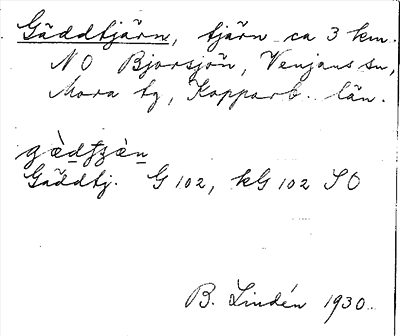 Gäddtjärn, tjärn ca 3 km.
NO Bjorsjön, Venjans sn,
Mora tg, Kopparb. län.
gæ̀dțʒæ̀n
Gäddtj. G 102, kG 102 SO
B. Lindén 1930.